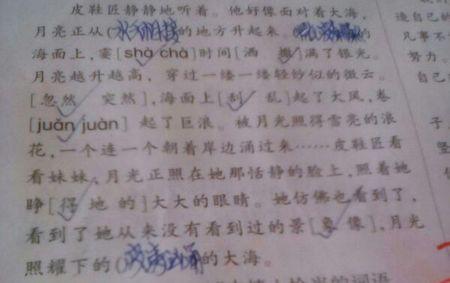 皮鞋匠静静地听着。他好像面对着大海,
月亮正从(水天相接)的地方升起来。的
海面上,霎[shà chà]时间[洒 撒]满了银光。
月亮越升越高,穿过一缕一缕轻纱似的微云。
[忽然 突然],海面上[刮 乱]起了大风,卷
[juǎn juàn]起了巨浪。被月光照得雪亮的浪
花,一个连一个朝着岸边涌过来……皮鞋匠看
看妹妹,月光正照在她那恬静的脸上,照着她
睁[得 地 的]大大的眼睛。她仿佛也看到了,
看到了她从来没有看到过的景[象 像],月光
照耀下的(波涛汹涌)的大海。
造自己的
凡事不
努力。
自己
子,
坚